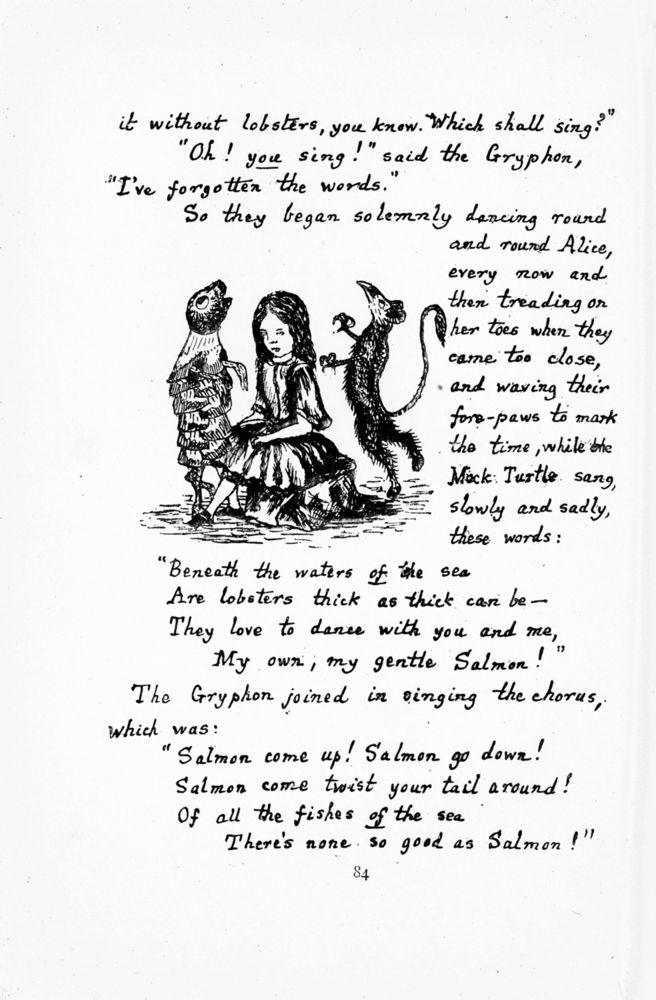 it without lobsters, you know. Which shall sing?"
"Oh! you sing!" said the Gryphon,
"I've forgotten the words."
So they began solemnly dancing round
and round Alice,
every now and
then treading on
her toes when they
came too close,
and waving their
fore-paws to mark
the time, while the
Mock Turtle sang,
slowly and sadly,
these words:
"Beneath the waters of the sea
Are lobsters thick as thick can be—
They love to dance with you and me,
My own, my gentle Salmon!"
The Gryphon joined in singing the chorus,
which was:
"Salmon come up! Salmon go down!
Salmon come twist your tail around!
Of all the fishes of the sea
There's none so good as Salmon!"
84